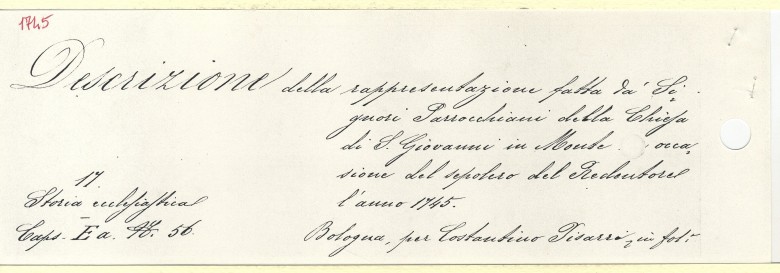 1745
Descrizione della rappresentazione fatta da' Si-
gnori Parrocchiani della Chiesa
di S. Giovanni in Monte occa-
sione del sepolcro del Redentore
l'anno 1745.
17
Storia ecclesiastica
Caps. E a. 56.
Bologna, per Costantino Pisarri, in fol.